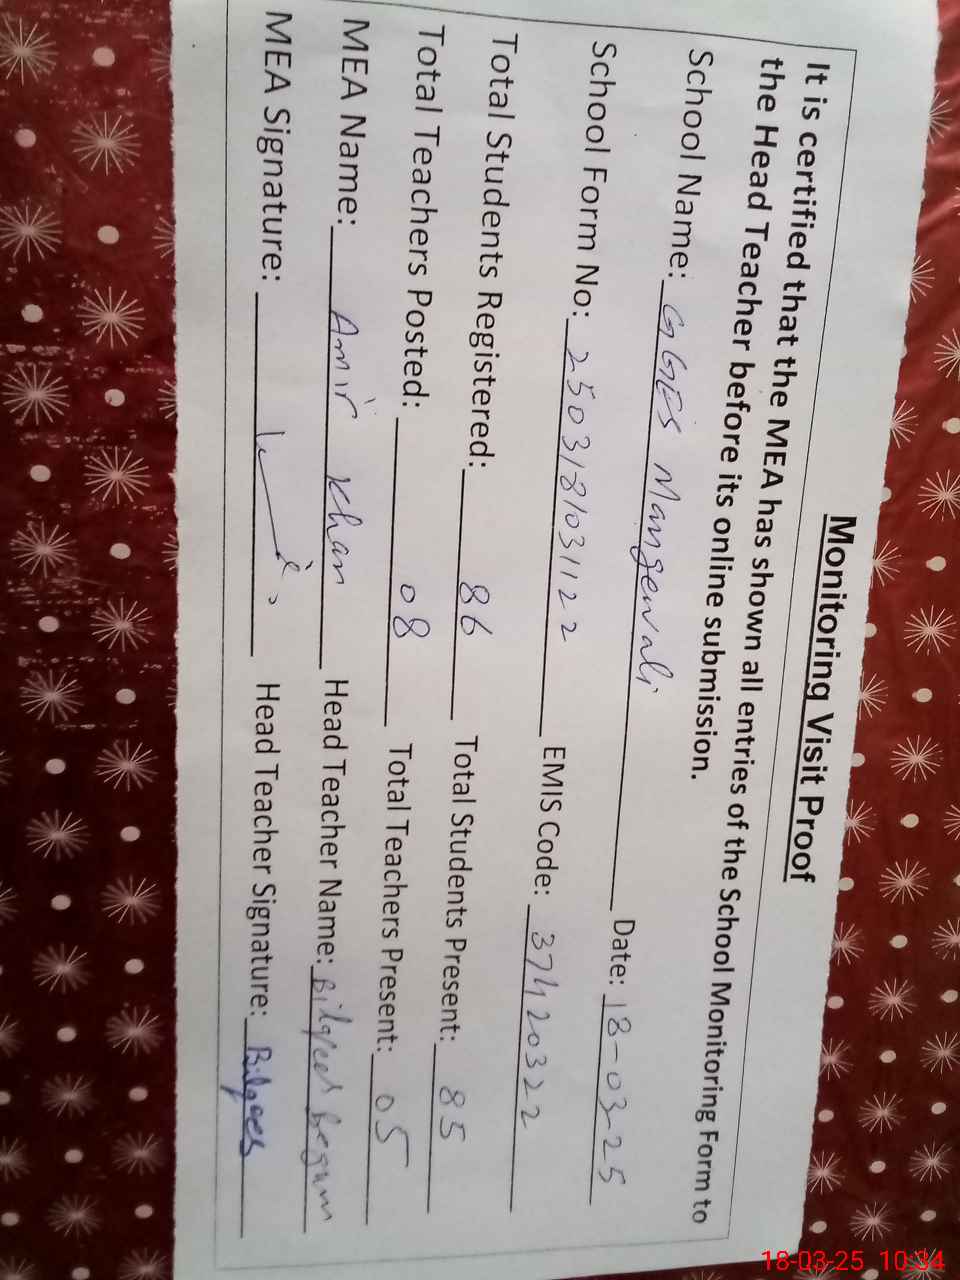 Monitoring Visit Proof
It is certified that the MEA has shown all entries of the School Monitoring Form to
the Head Teacher before its online submission.
School Name: GGES Mangewali Date: 18-03-25
School Form No: 250318103112 2 EMIS Code: 37420322
Total Students Registered: 86 Total Students Present: 85
Total Teachers Posted: 08 Total Teachers Present: 05
MEA Name: Amir Khan Head Teacher Name: Bilqees begum
MEA Signature: Head Teacher Signature: Bilqees
18-03-25 10:34